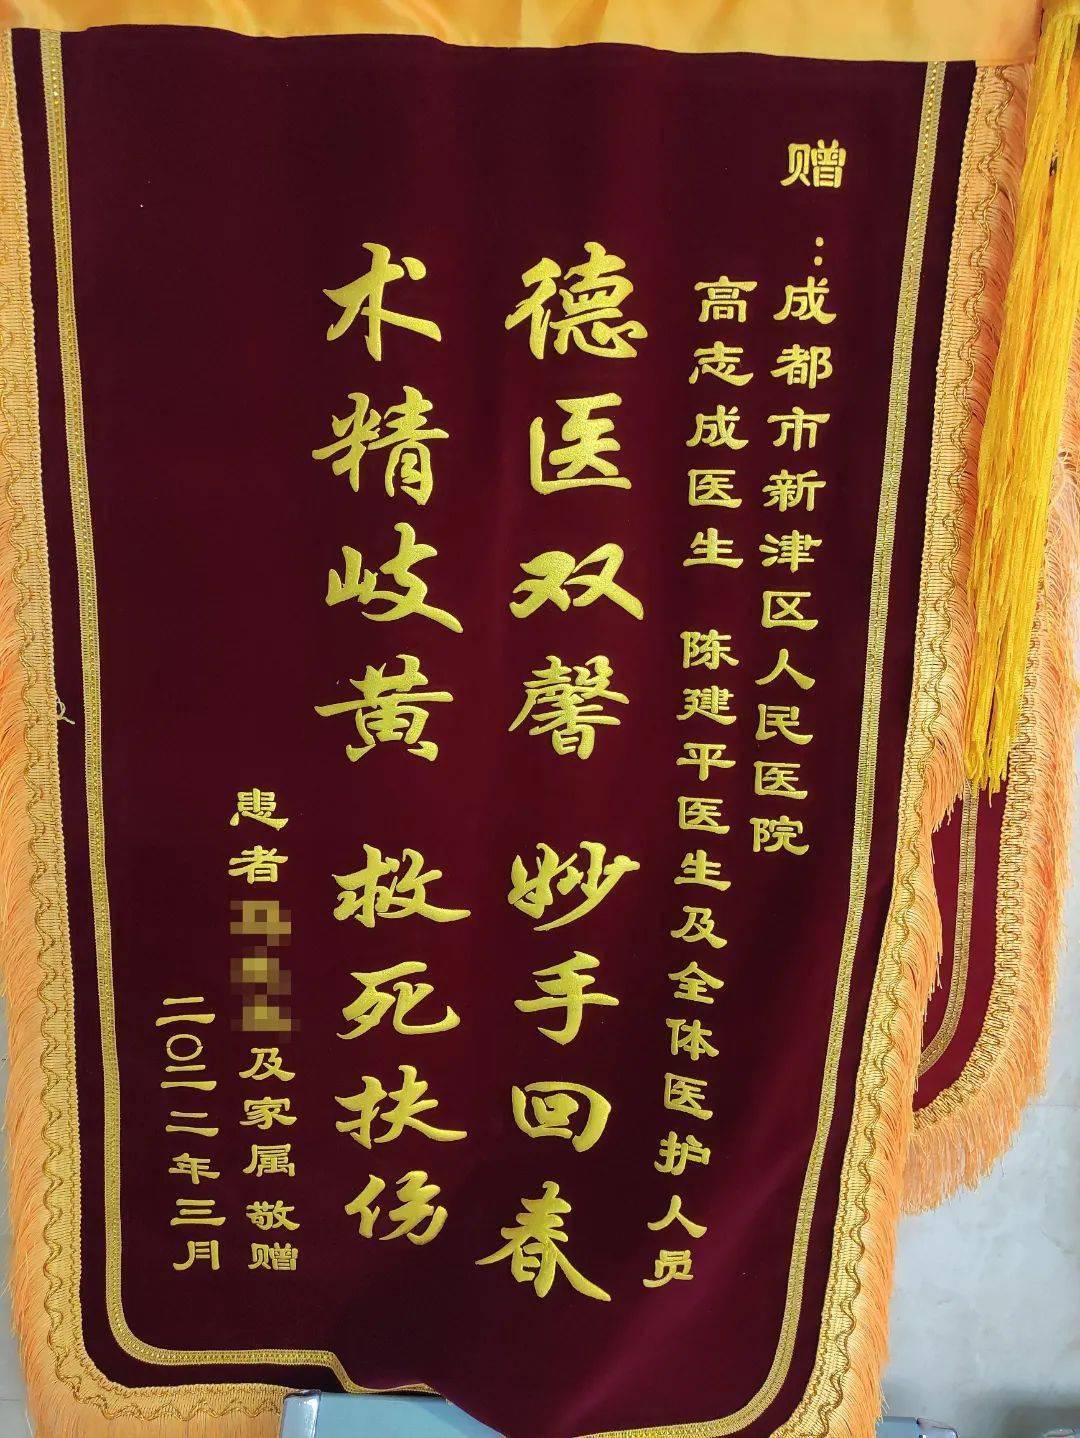 赠:成都市新津区人民医院
高志成医生 陈建平医生及全体医护人员
德医双馨 妙手回春
术精岐黄 救死扶伤
患者 及家属 敬赠
二〇二二年三月